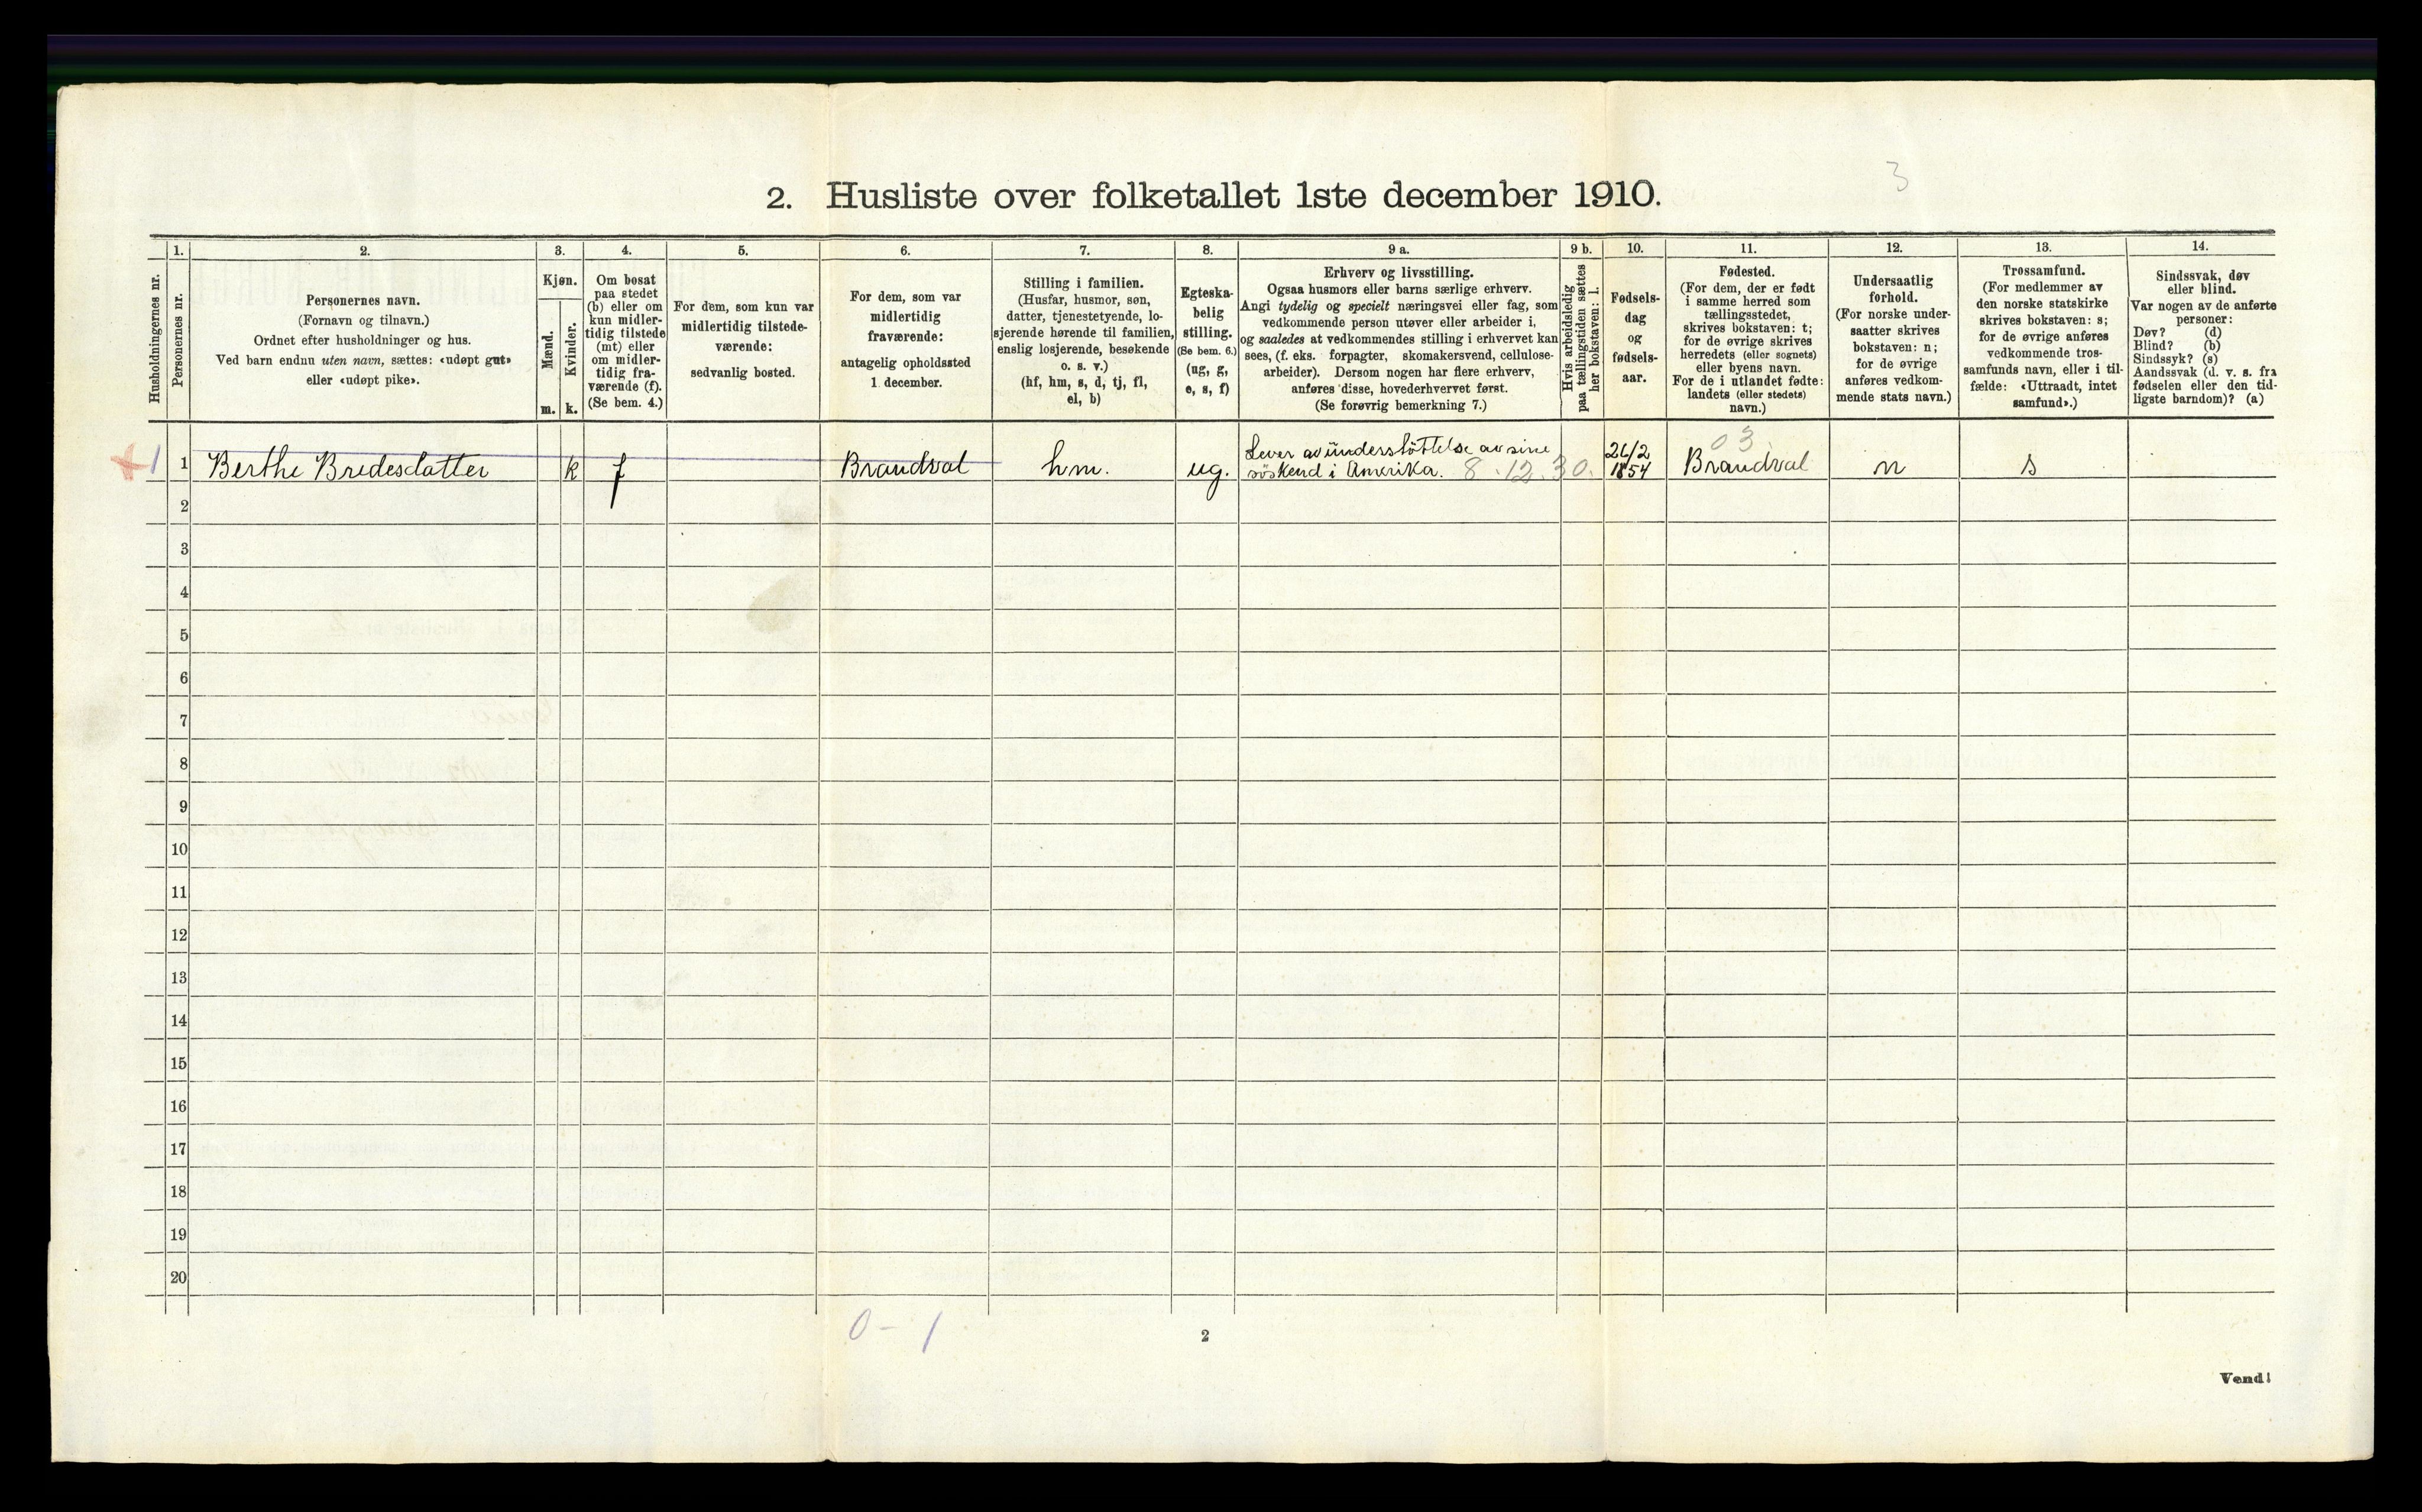 3
2. Husliste over folketallet 1ste december 1910.
Husholdningernes nr.
1.
Personernes nr.
2.
Personernes navn.
(Fornavn og tilnavn.)
Ordnet efter husholdninger og hus.
Ved barn endnu uten navn, sættes: «udøpt gut»
eller «udøpt pike».
3.
Kjøn.
Mænd.
Kvinder.
m. k.
4.
Om bosat
paa stedet
(b) eller om
kun midler-
tidig tilstede
(mt) eller
om midler-
tidig fra-
værende (f).
(Se bem. 4.)
5.
For dem, som kun var
midlertidig tilstede-
værende:
sedvanlig bosted.
6.
For dem, som var
midlertidig
fraværende:
antagelig opholdssted
1 december.
7.
Stilling i familien.
(Husfar, husmor, søn,
datter, tjenestetyende, lo-
sjerende hørende til familien,
enslig losjerende, besøkende
o. s. v.)
(hf, hm, s, d, tj, fl,
el, b)
8.
Egteska-
belig
stilling.
(Se bem. 6.)
(ug, g,
e, s, f)
9 a.
Erhverv og livsstilling.
Ogsaa husmors eller barns særlige erhverv.
Angi tydelig og specielt næringsvei eller fag, som
vedkommende person utøver eller arbeider i,
og saaledes at vedkommendes stilling i erhvervet kan
sees, (f. eks. forpagter, skomakersvend, cellulose-
arbeider). Dersom nogen har flere erhverv,
anføres disse, hovederhvervet først.
(Se forøvrig bemerkning 7.)
9 b.
Hvis arbeidsledig
paa tællingstiden sættes
her bokstaven: l.
10.
Fødsels-
dag
og
fødsels-
aar.
11.
Fødested.
(For dem, der er født
i samme herred som
tællingsstedet,
skrives bokstaven: t;
for de øvrige skrives
herredets (eller sognets)
eller byens navn.
For de i utlandet fødte:
landets (eller stedets)
navn.)
12.
Undersaatlig
forhold.
(For norske under-
saatter skrives
bokstaven: n;
for de øvrige
anføres vedkom-
mende stats navn.)
13.
Trossamfund.
(For medlemmer av
den norske statskirke
skrives bokstaven: s;
for de øvrige anføres
vedkommende tros-
samfunds navn, eller i til-
fælde: «Uttraadt, intet
samfund».)
14.
Sindssvak, døv
eller blind.
Var nogen av de anførte
personer:
Døv? (d)
Blind? (b)
Sindssyk? (s)
Aandssvak (d. v. s. fra
fødselen eller den tid-
ligste barndom)? (a)
03
Lever av understöttelse av sine 26/2
1 1 Berthe Bredesdatter k f Brandval hm. ug. söskend i Amerika. 8.12.30. 1854 Brandval n s
2
3
4
5
6
7
8
9
10
11
12
13
14
15
16
17
18
19
20
0 - 1
2
Vend!